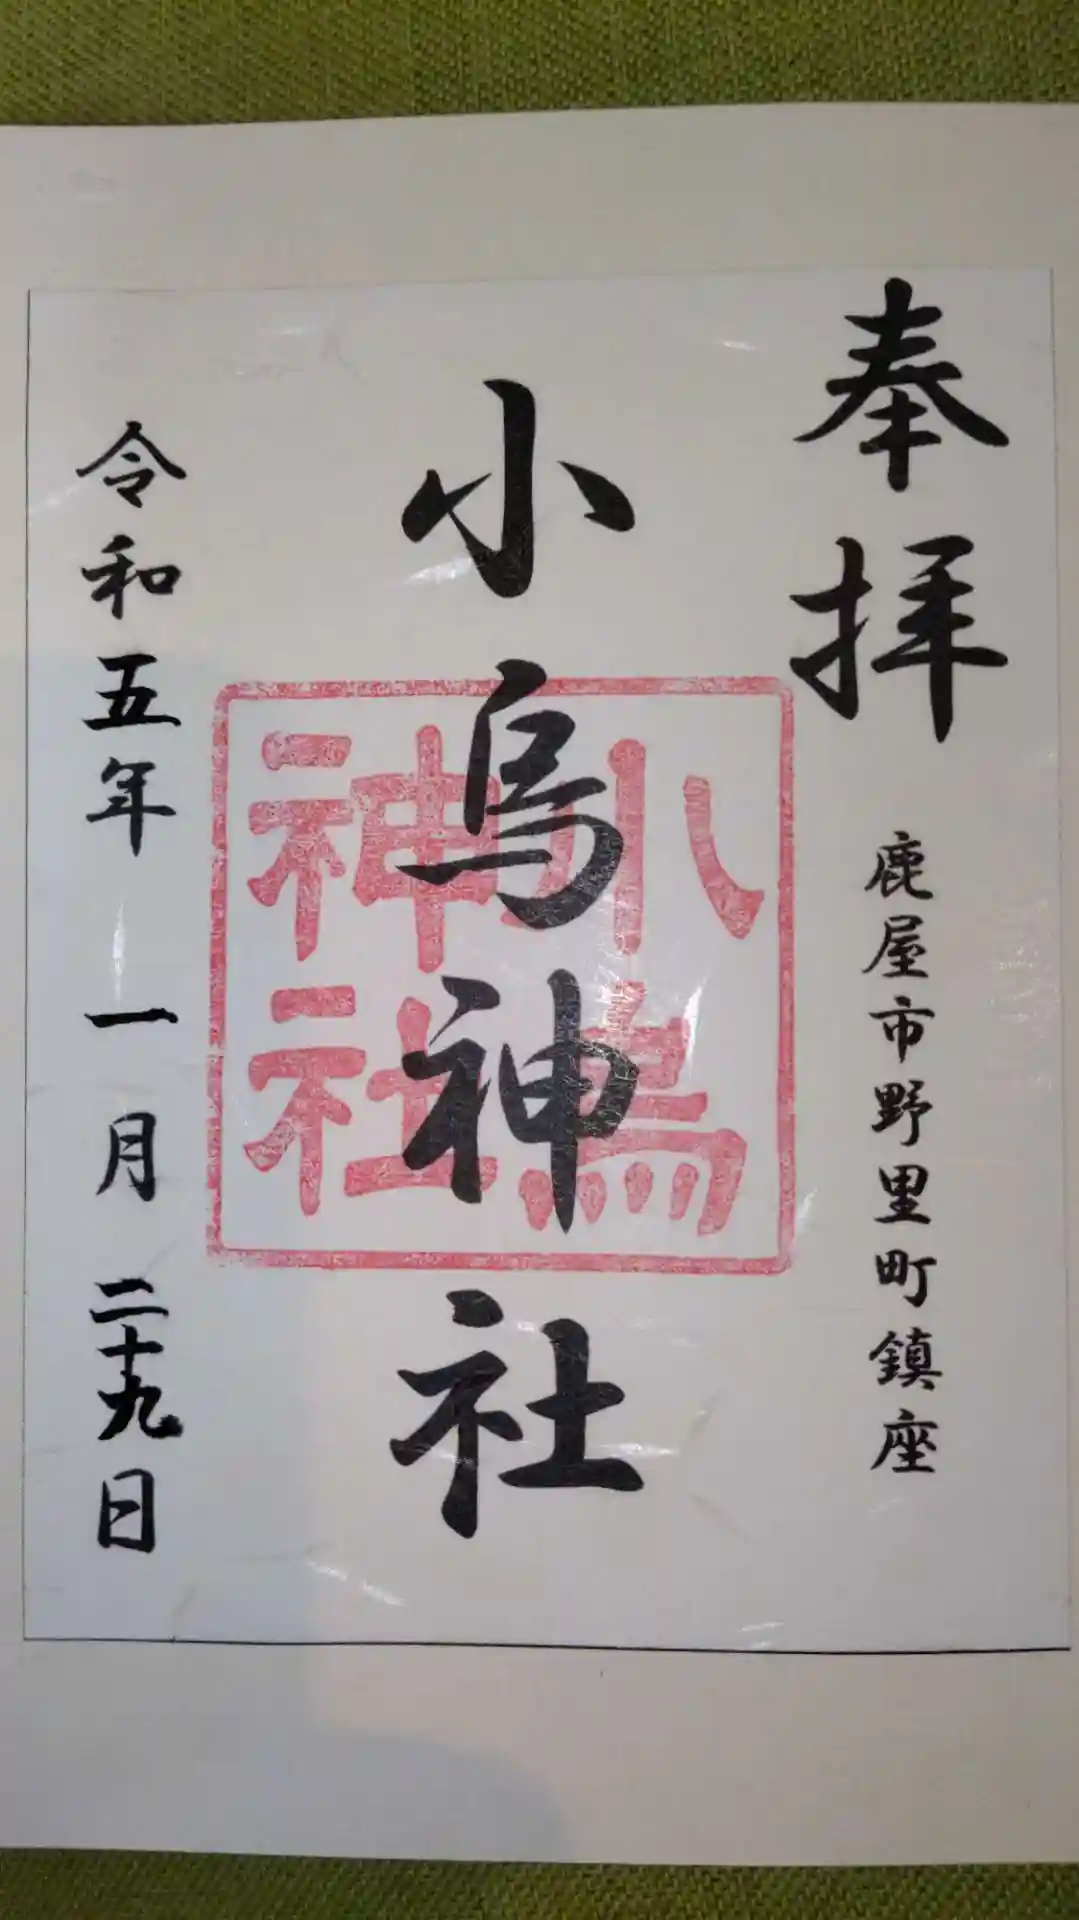 奉拝
鹿屋市野里町鎮座
小烏神社
小烏
神社
令和五年一月二十九日